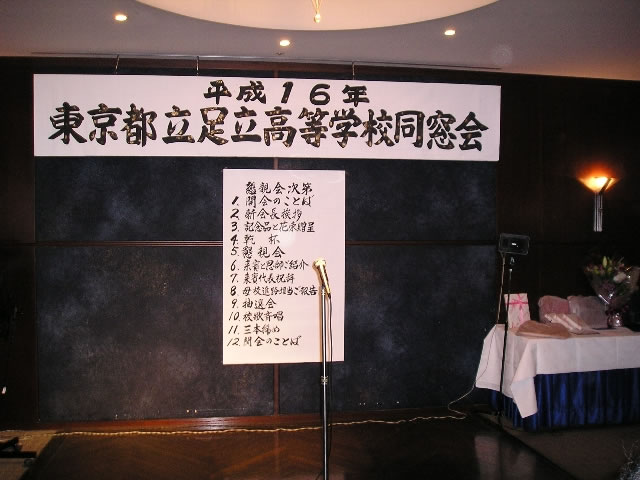 平成16年
東京都立足立高等学校同窓会
懇親会次第
1. 開会のことば
2. 新会長挨拶
3. 記念品と花束贈呈
4. 乾杯
5. 懇親会
6. 来賓と恩師ご紹介
7. 来賓代表祝辞
8. 母校進路担当ご報告
9. 抽選会
10. 校歌斉唱
11. 三本締め
12. 閉会のことば